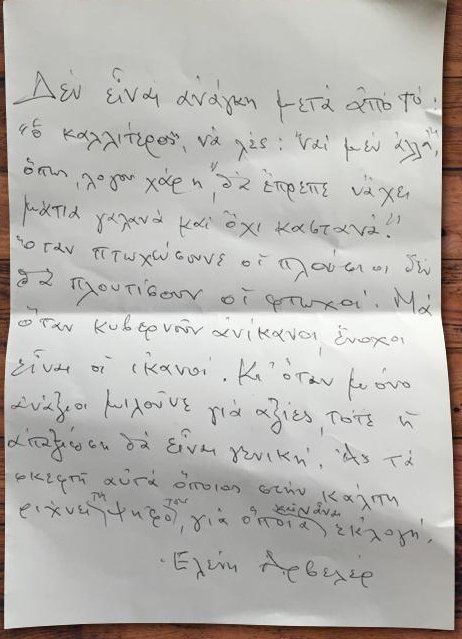 Δὲν εἶναι ἀνάγκη μετὰ ἀπὸ τό:
"ὁ καλλίτερος", νὰ λές: "ναὶ μὲν ἀλλὰ",
ὅπως, λόγου χάρη, "θὰ ἔπρεπε νἄχει
μάτια γαλανὰ καὶ ὄχι καστανά".
Ὅταν πτωχεύσουνε οἱ πλούσιοι δὲν
θὰ πλουτίσουν οἱ φτωχοί. Μὰ
ὅταν κυβερνοῦν ἀνίκανοι, ἔνοχοι
εἶναι οἱ ἱκανοί. Κι' ὅταν μόνο
ἀνάξιοι μιλοῦνε γιὰ ἀξίες, τότε ἡ
ἀπαξίωση θὰ εἶναι γενική. Ἂς τὰ
σκεφτῆ αὐτὰ ὅποιος στὴν κάλπη
ρίχνει τὴ ψῆφο του, γιὰ ὅποια κι ἂν εἶναι ἐκλογή.
Ἑλένη Ἀρβελέρ